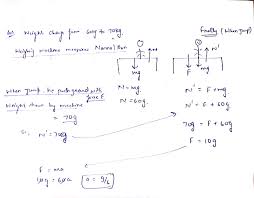 (b) Weight change from 60g to 70g.
Weighing machine measures Normal Rxn
Finally (When Jump)
N
N'
mg
F
mg
When Jump, he push ground with
force F
Weight shown by machine
= 70g
N = mg
N = 60g
N' = F + mg
N' = F + 60g
So, N' = 70g
70g = F + 60g
F = 10g
F = ma
10g = 60a
a = g/6